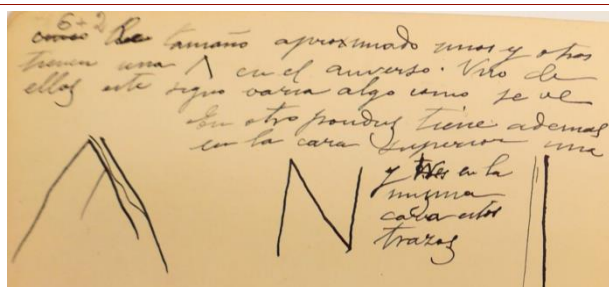 6+2
De tamaño aproximado unos y otros
tienen una Λ en el anverso. Uno de
ellos este signo varia algo como se ve
En otro pondus tiene ademas
en la cara superior una
N
y en la
misma
cara estos
trazos